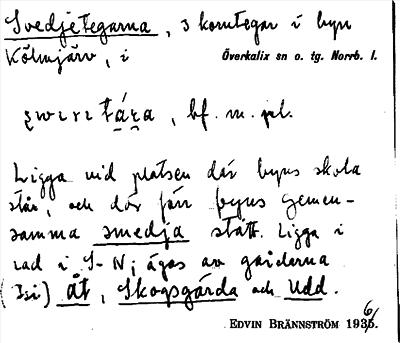 Svedjetegarna, 3 korntegar i byn
Kölmjärv, i Överkalix sn o. tg. Norrb. l.
bf. m. pl.
Ligga vid platsen där byns skola
står, och där förr byns gemen-
samma smedja stått. Ligga i
rad i S-N; ägas av gårderna
åt, Skogsgårda och Udd.
EDVIN BRÄNNSTRÖM 1936.